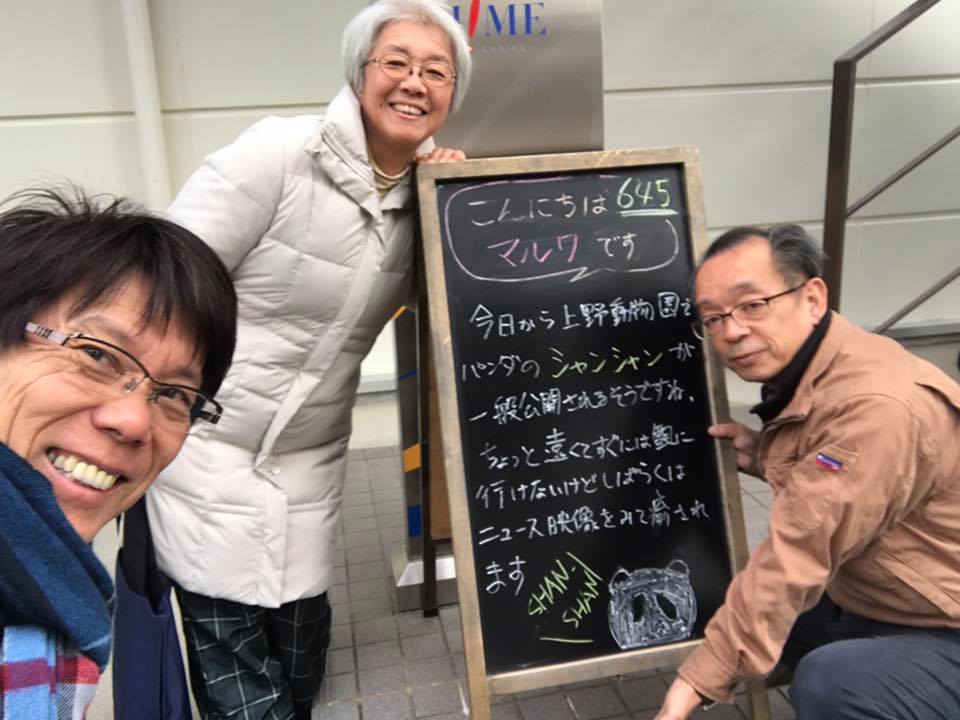 ME
ANNING
こんにちは 645
マルワです
今日から上野動物園で
パンダのシャンシャンが
一般公開されるそうですね、
ちょっと遠くてすぐには観に
行けないけどしばらくは
ニュース映像をみて癒され
ます
SHAN-
SHAN